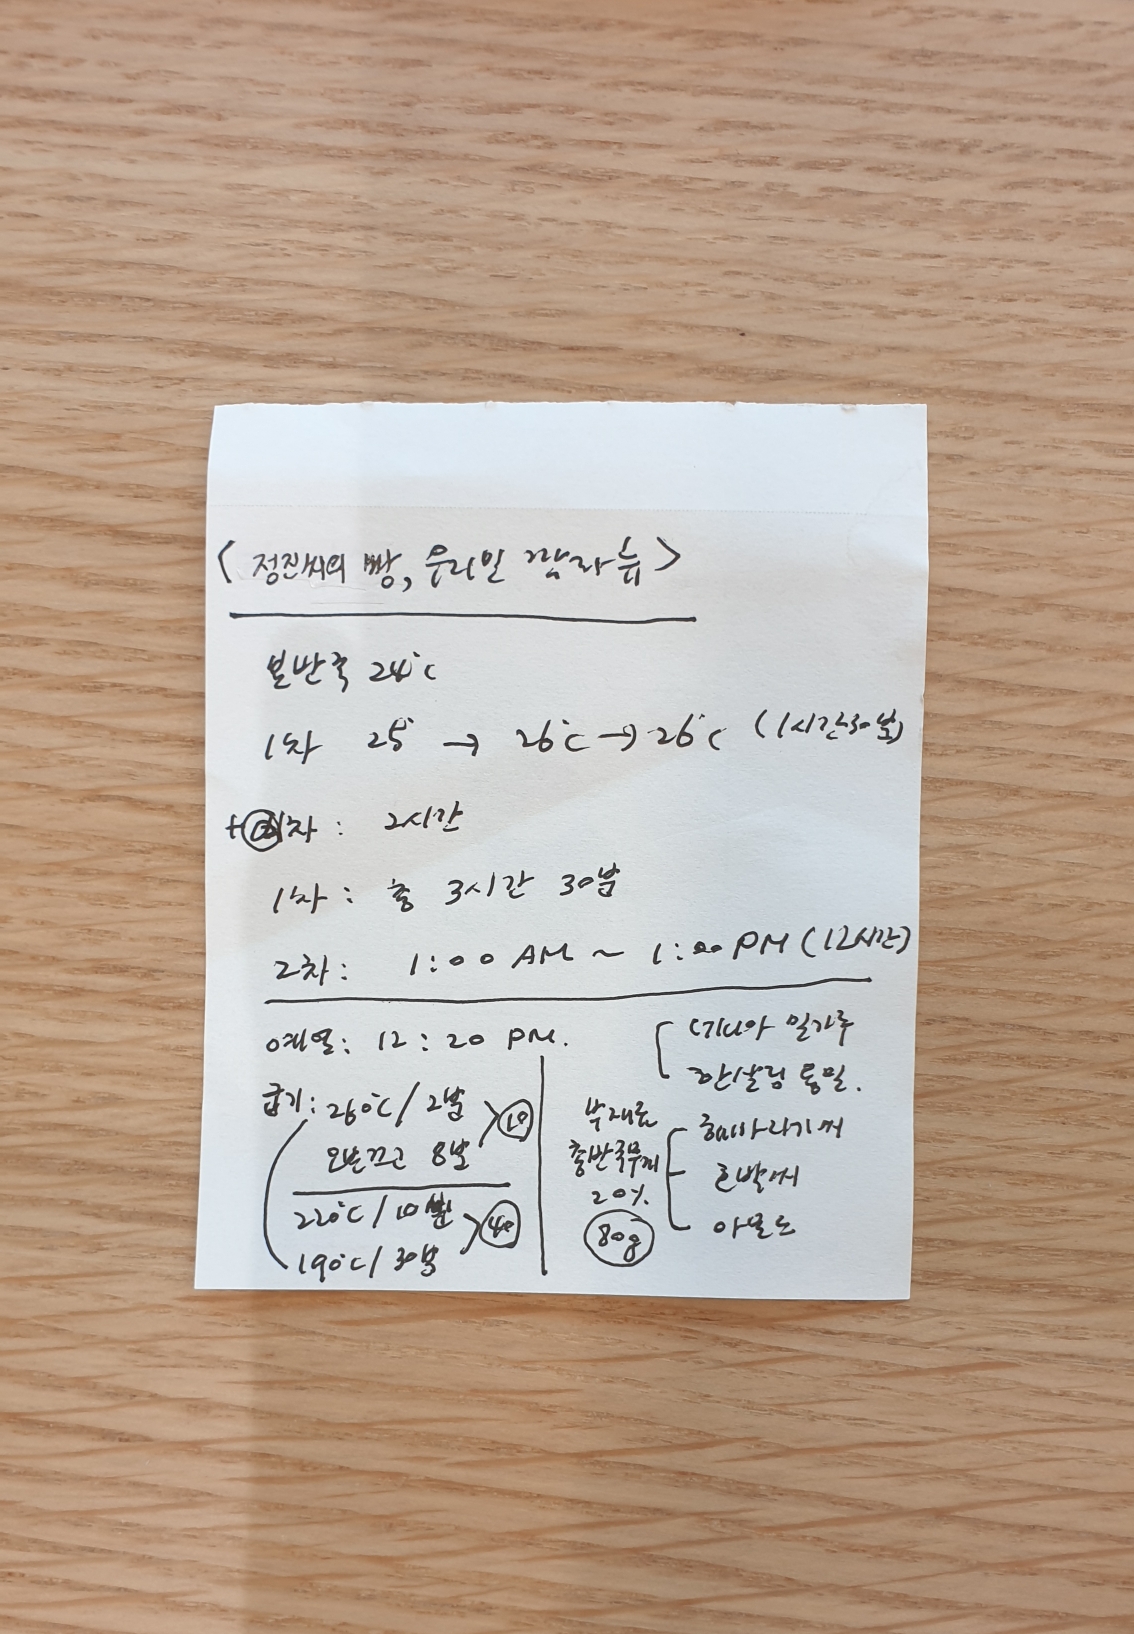 <정진씨의 빵, 우리밀 깜파뉴>
본반죽 24°C
1차 25° → 26°C → 26°C (1시간30분)
차 : 2시간
1차 : 총 3시간 30분
2차 : 1:00 AM ~ 1:00 PM (12시간)
예열 : 12 : 20 PM.
굽기 : 260°C / 2분
오븐끄고 8분
10
220°C / 10분
190°C / 30분
40
밀가루
한살림 통밀.
부재료
총반죽무게
20%
80g
해바라기씨
호박씨
아몬드